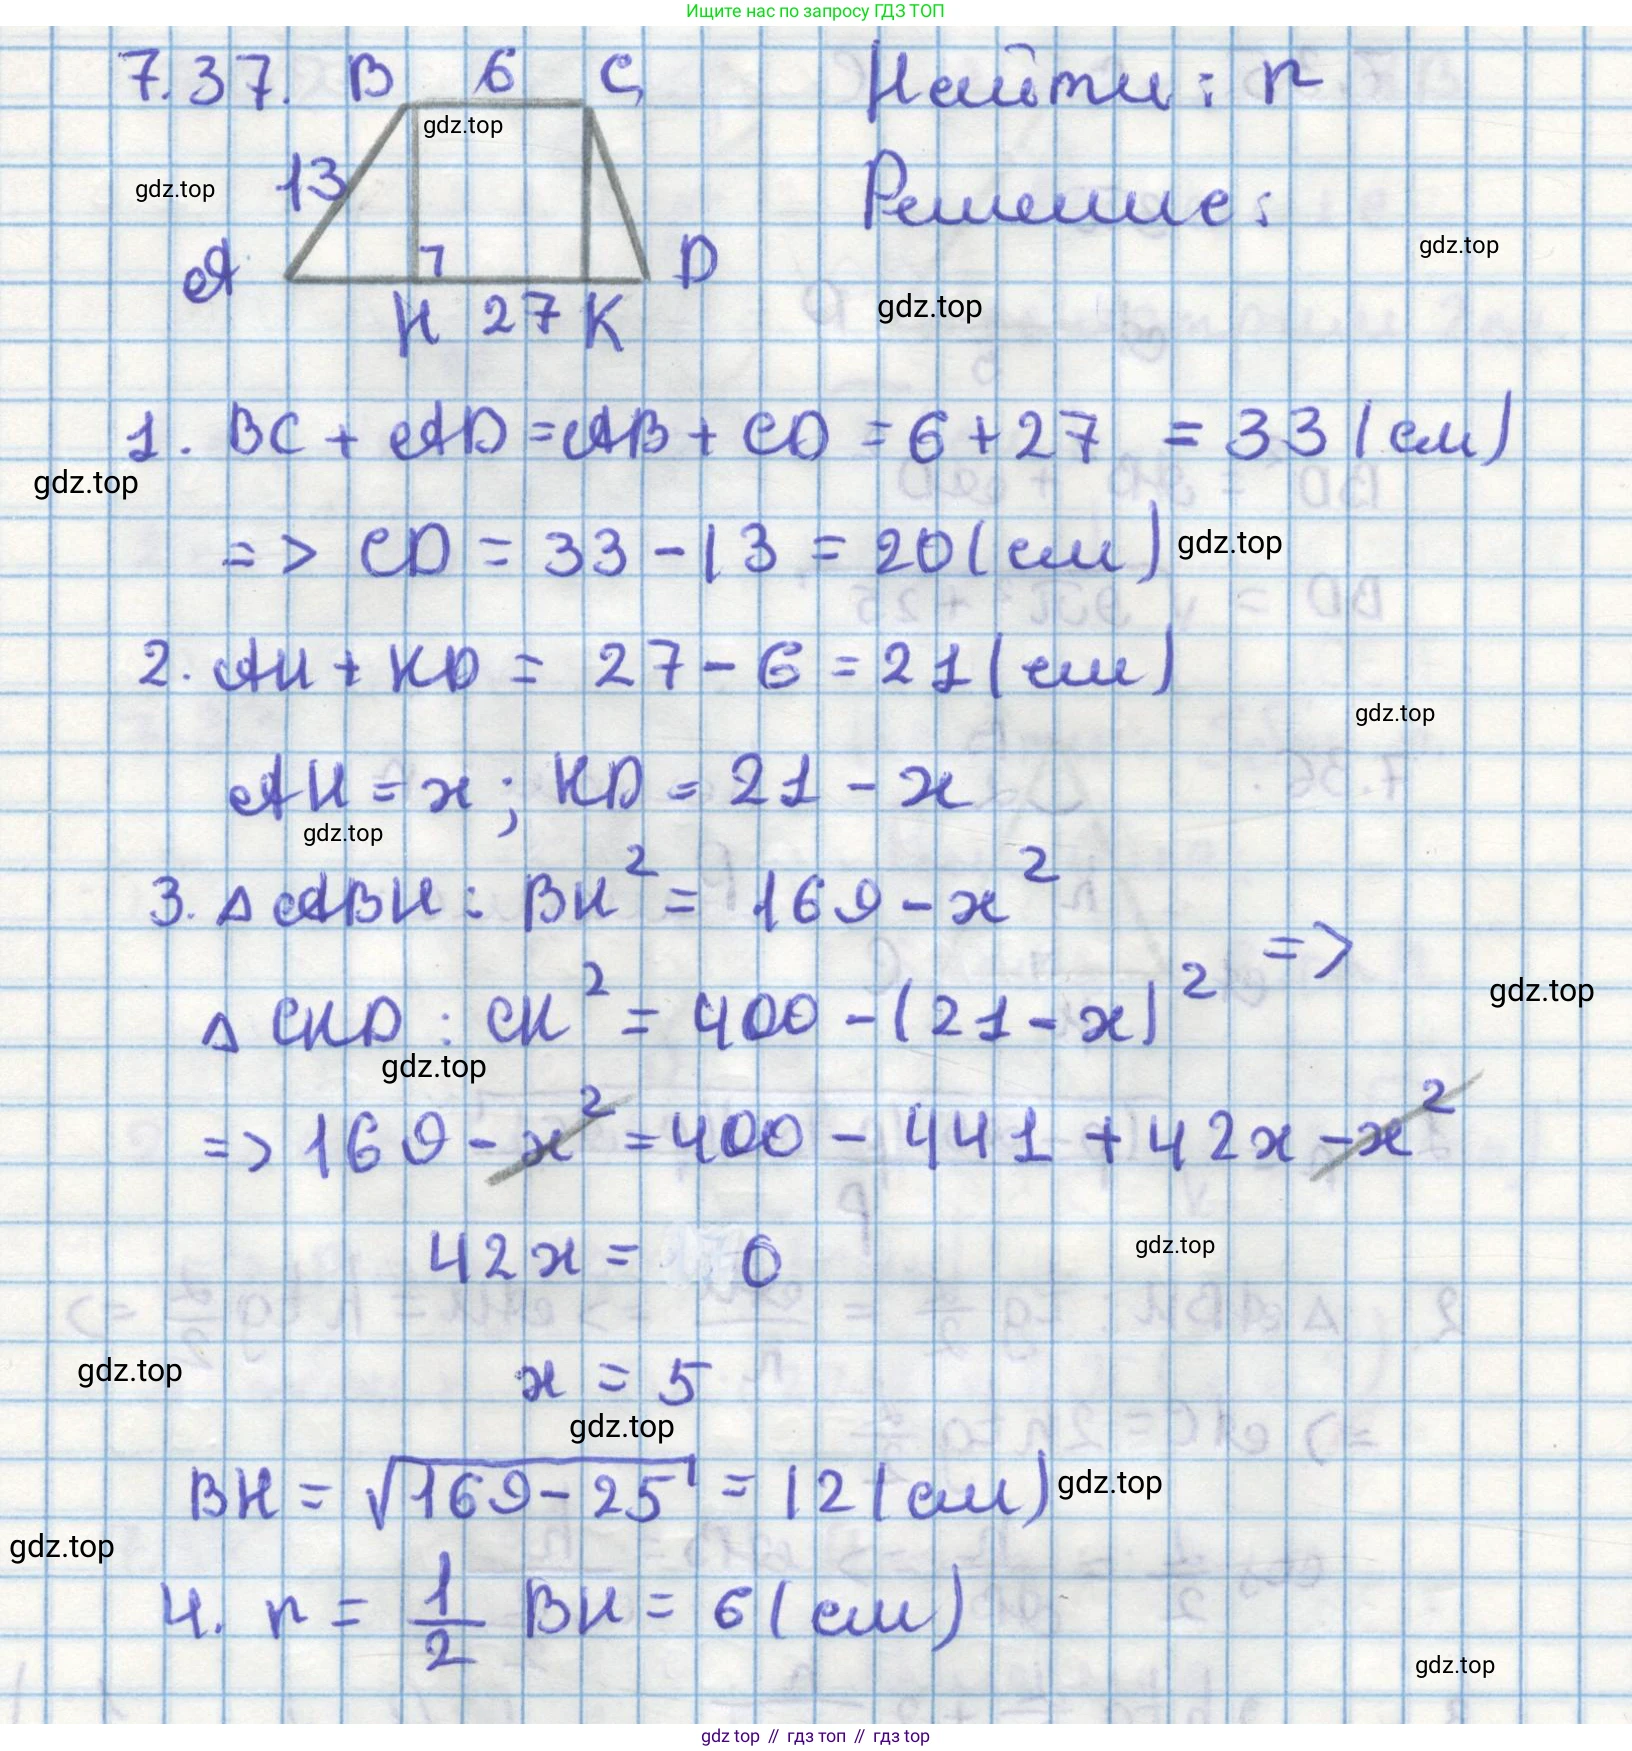 Ищите нас по запросу ГДЗ ТОП
7.37. B 6 C Найти: r
gdz.top
13
gdz.top
Решение:
A D
gdz.top
H 27 K
gdz.top
1. BC + AD = AB + CD = 6 + 27 = 33 (см)
gdz.top
=> CD = 33 - 13 = 20 (см)
gdz.top
2. AH + KD = 27 - 6 = 21 (см)
gdz.top
AH = x; KD = 21 - x
gdz.top
3. △ ABH : BH² = 169 - x²
=>
△ CKD : CK² = 400 - (21 - x)²
gdz.top
gdz.top
=> 169 - x² = 400 - 441 + 42x - x²
gdz.top
42x = 0
gdz.top
x = 5
gdz.top
BH = √169 - 25 = 12 (см)
gdz.top
gdz.top
4. r = 1/2 BH = 6 (см)
gdz.top
gdz top // гдз топ // гдз top